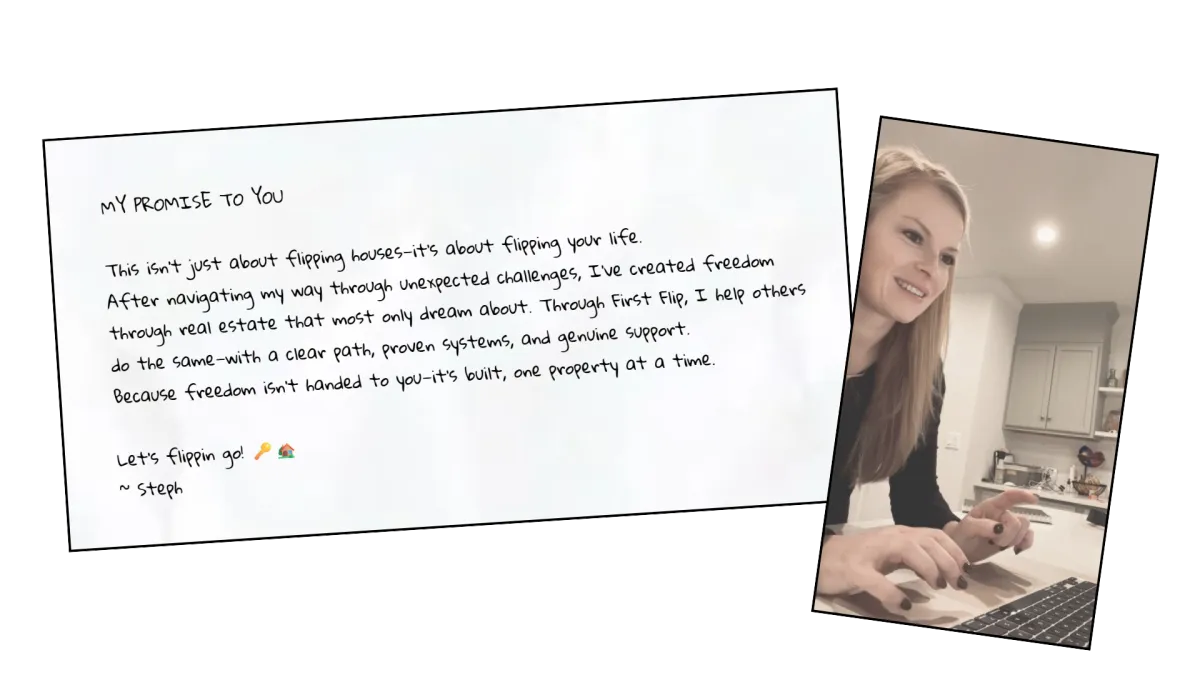 MY PROMISE TO YOU
This isn't just about flipping houses–it's about flipping your life.
After navigating my way through unexpected challenges, I've created freedom
through real estate that most only dream about. Through First Flip, I help others
do the same–with a clear path, proven systems, and genuine support.
Because freedom isn't handed to you–it's built, one property at a time.
Let's flippin go! 🔑 🏠
~ Steph